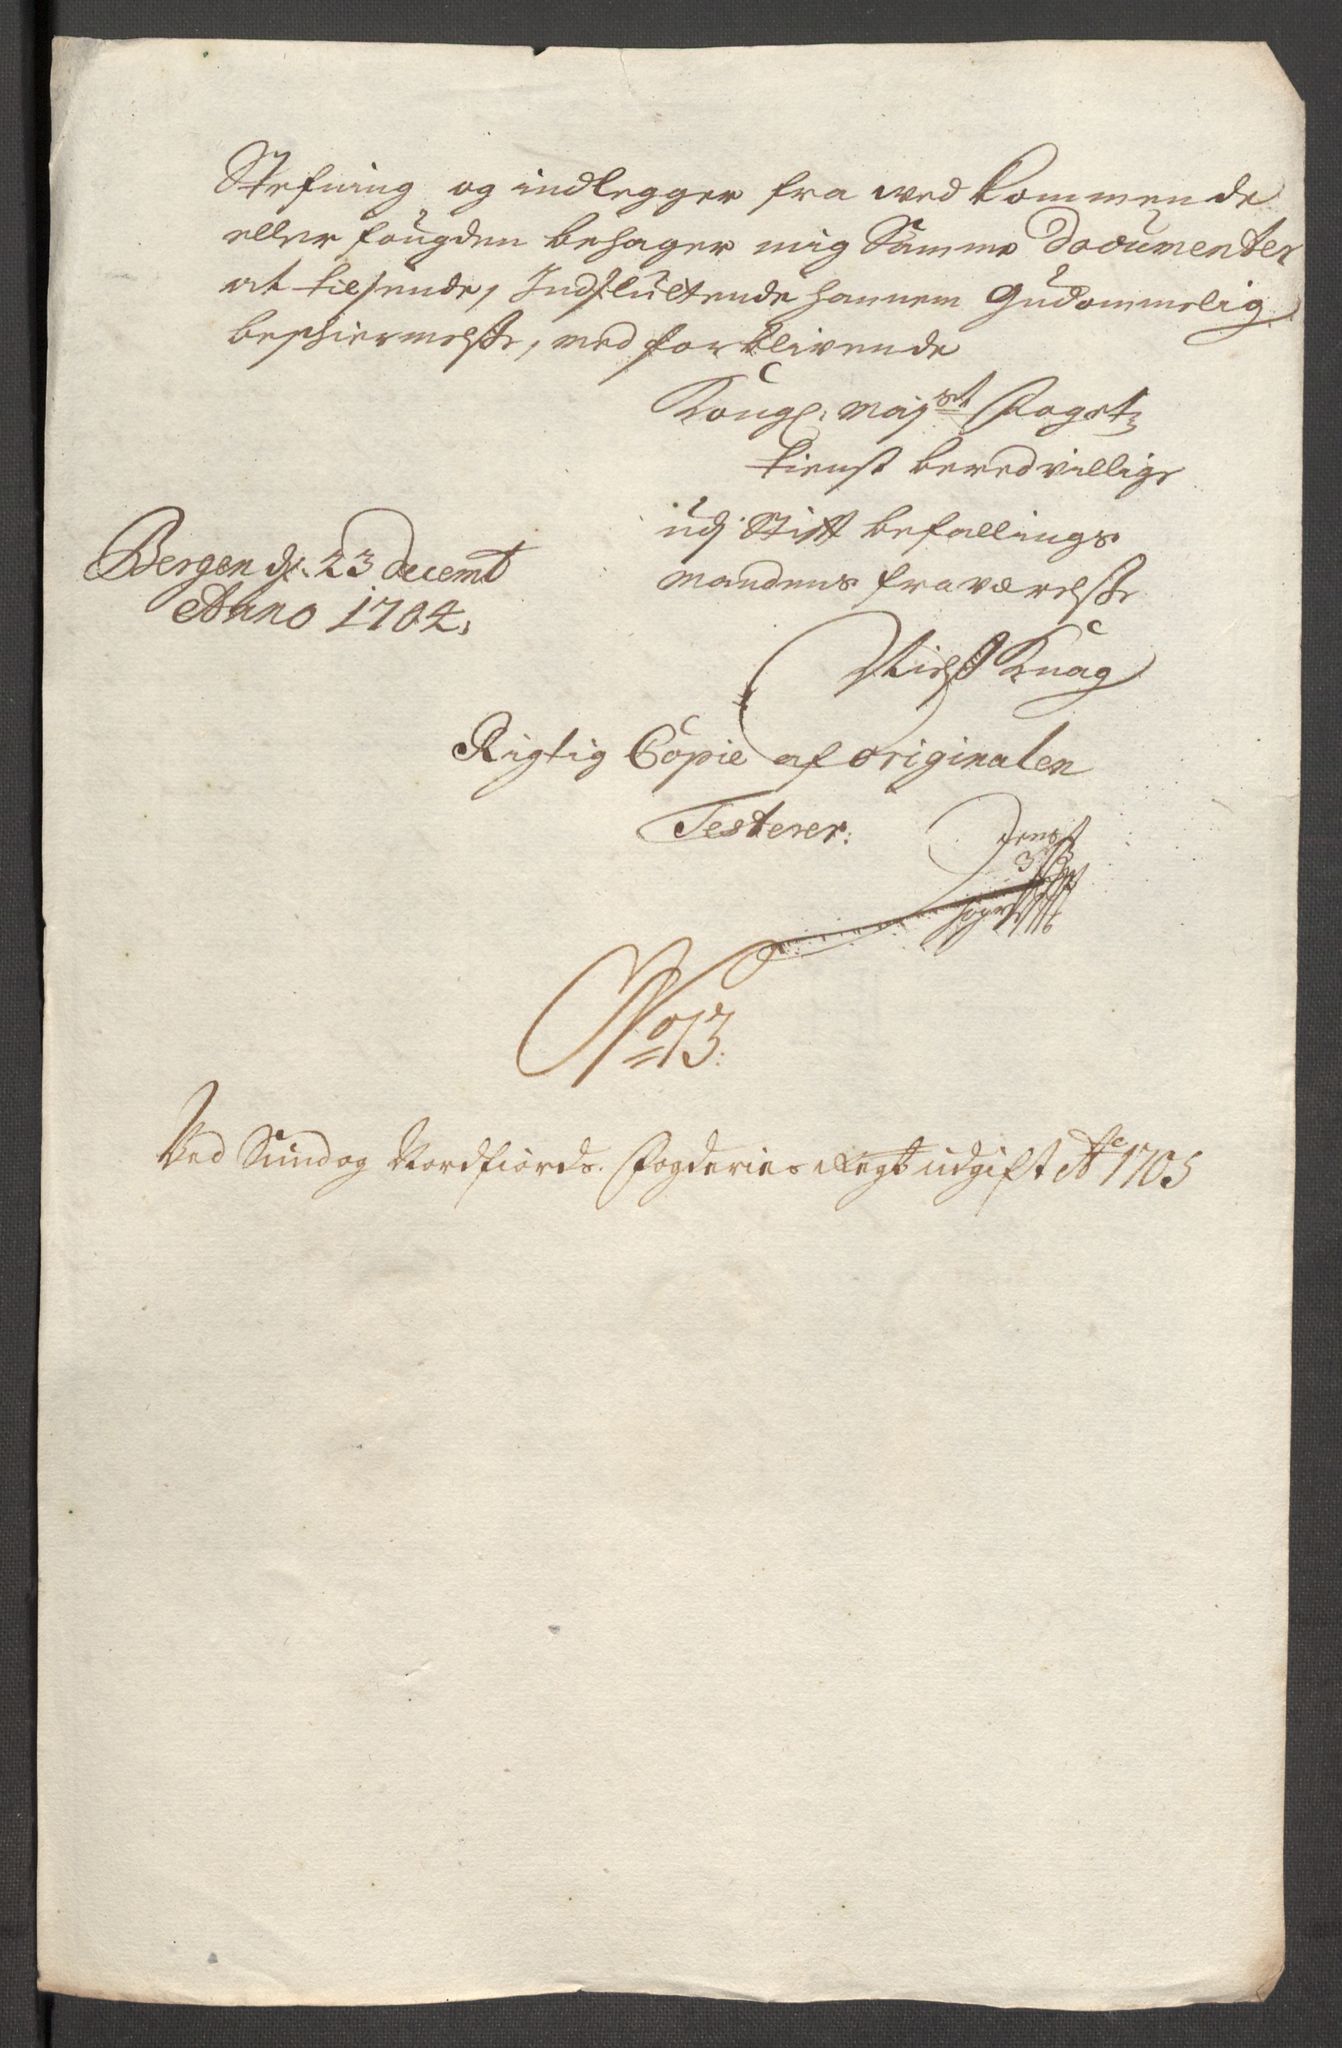 Stefning og indlegger fra ved kommende
eller fougden behager mig Samme Documenter
at tilsende, Indsluttende hannem Gudommelig
beschiermelsse, med forblivende
Kongl: Maj:st Foget
tienst beredvillige
udj Stift befallings
mandens fraværelsse
Bergen dn: 23 decembr
Anno 1704.
Knag
Rigtig Copie af originalen
Testerer:
No 13:
Ved Sund og Nordfiords Fogderies Regb udgift Ao 1705